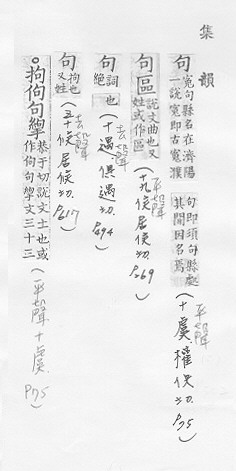 集
韻
冤句縣名在濟陽
一說冤即古冤濮
句即須句縣處
其間因名焉
(平聲十虞權俱切. P75)
句區 說文曲也又
姓或作區
(平聲十九侯居侯切. P269)
句 詞也
絕
(去聲十遇俱遇切. P494)
句 拘也
又姓
(去聲五十候居候切. P617)
○拘佝句 恭于切說文止也或
作佝句 文三十三
(平聲十虞 P75)